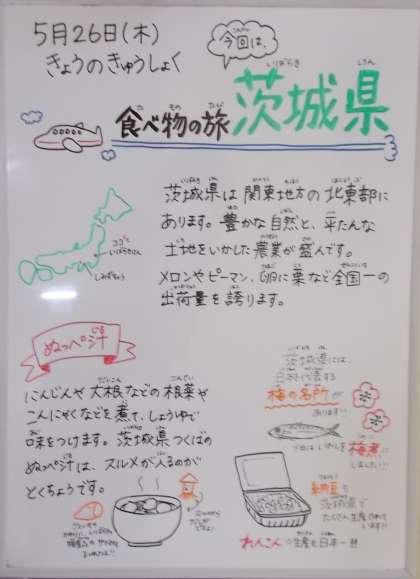 5月26日(木)
きょうのきゅうしょく
今回は、
食べ物の旅
茨城県
茨城県は関東地方の北東部に
あります。豊かな自然と、平たんな
土地をいかした農業が盛んです。
メロンやピーマン、卵に栗など全国一の
出荷量を誇ります。
ココだ
いばらきけん
ぬっぺ汁
にんじんや大根などの根菜や
こんにゃくなどを煮て、しょうゆで
味をつけます。茨城県つくばの
ぬっぺ汁は、スルメが入るのが
とくちょうです。
茨城県には、
日本を代表する
梅の名所が
あります!!
いわしを梅煮に
しました!!
納豆も
茨城県で
たくさん生産されて
います!!
れんこん
生産も日本一!!